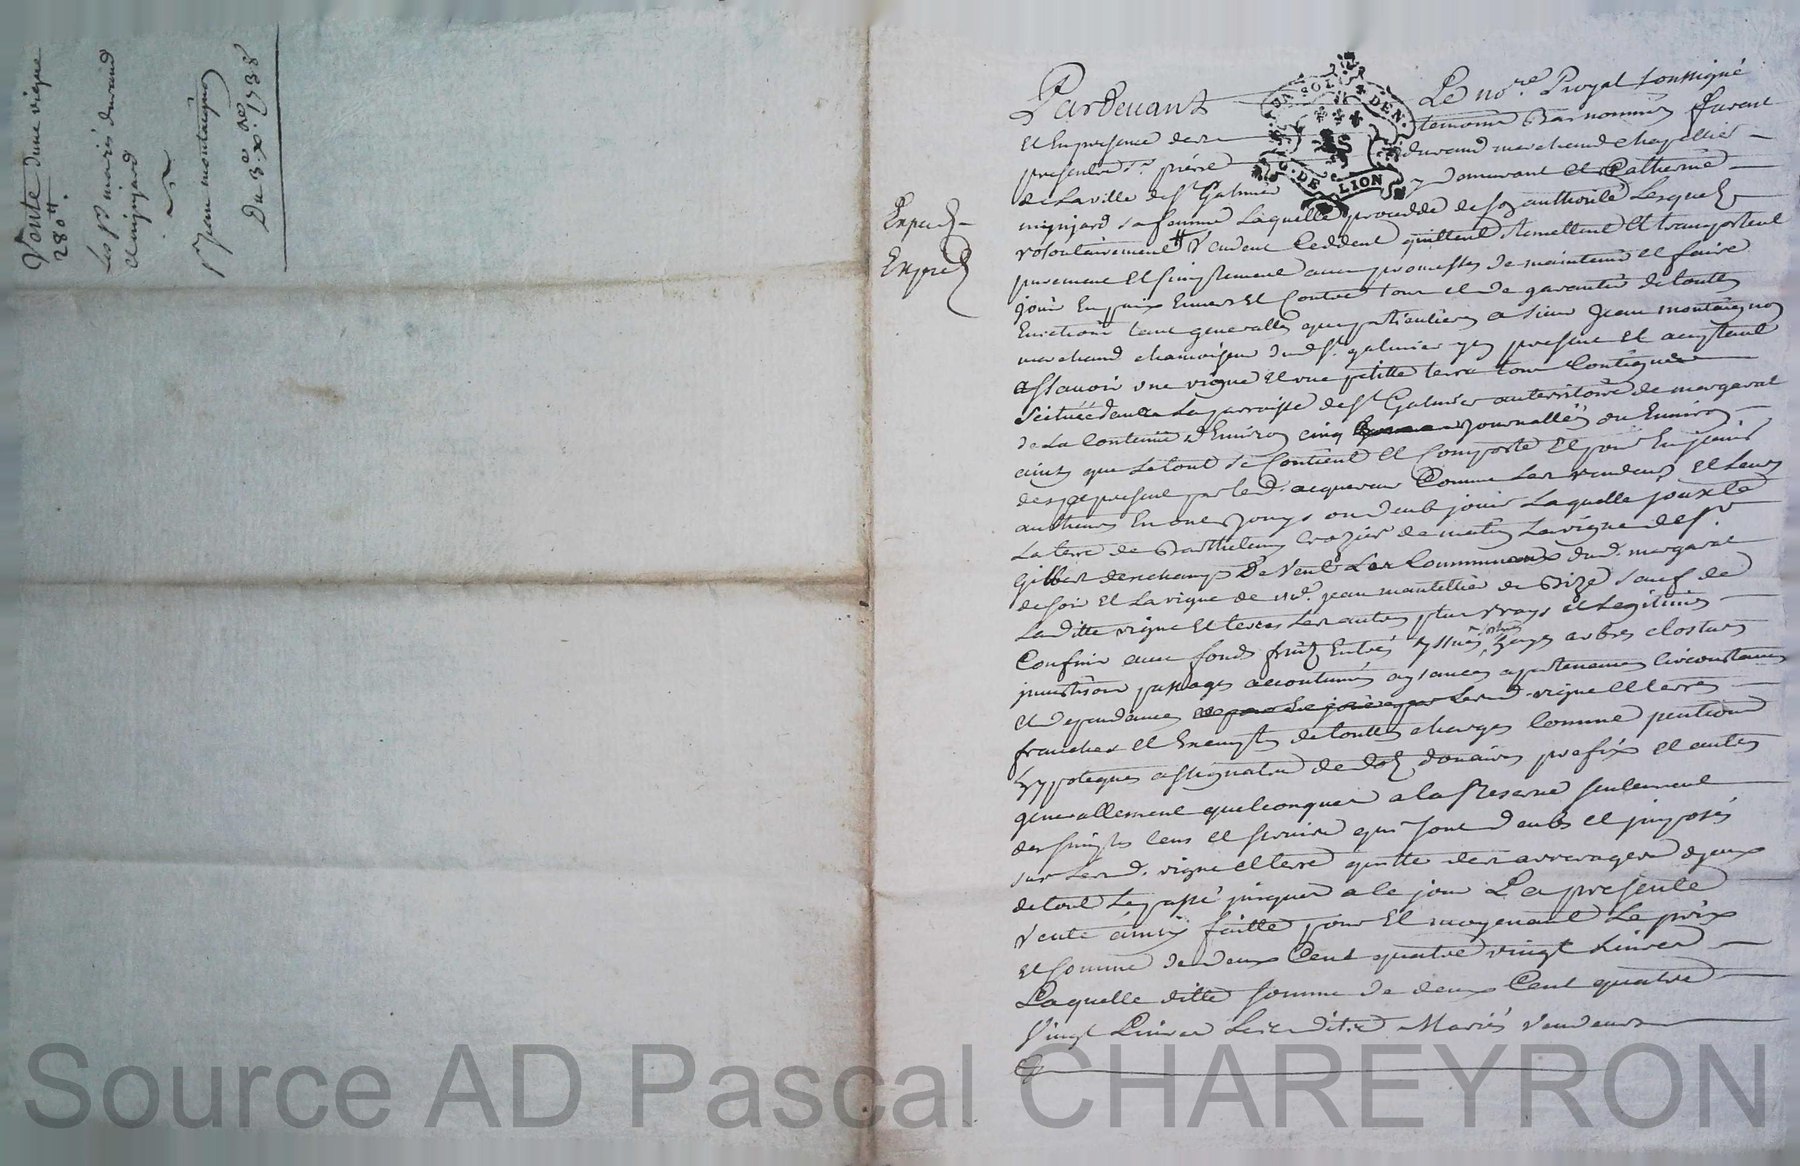 Vente d'une vigne
280#.
Les ss. mariés durand
et mignard
a
sr. Jean montaignon
Du 3e. xbre. 1738
Exped.
Exped.
UN SOL 4 DEN.
G. DE LION
Pardevant Le nore. Royal soussigné
Et En presence des temoins Bas nommés furent
presents sr. pierre durand marchand chapellier
de La ville de st. Galmier y demeurant et Catherine
mignard sa femme Laquelle procedde de son authorité Lesquels
volontairement # Vendent Ceddent quittent remettent Et transportent
purement Et simplement avec promesses de maintenir et faire
jouir En paix Envers Et Contre tous et de garantir de toutes
Evictions tant generalles que particulieres a sieur Jean montaignon
marchand chamoiseur dud. st. galmier icy present Et acceptant
assavoir une vigne Et une petitte terre tout Contigue
scituée dans La parroisse de st. Galmier au territoire de margaral
de La Contenue d'Environ cinq journallées ou Environ
ainsy que Le tout se Contient Et Comporte Et pour En jouir
des a present par led. acquereur Comme Les vendeurs Et Leurs
autheurs En ont jouys ou deub jouir Laquelle jouxte
La terre de Barthelemy Crozier de matin La vigne de sr.
Gilbert deschamps De Vent Les Communeaux dud. margaral
de soir Et La vigne de me. jean mantellier de Bize sauf de
La ditte vigne Et terres Les autres plus vrays et Legitimes
Confins avec fonds fruits Entrés yssues, hayes arbres clostures
passages accoutumés aysances apartenances Circonstances
et dependances Lesd. vigne Et terres
franches Et Exemptes de touttes charges Comme pentions
hypoteques assignation de dot, donaires prefix et autres
generallement quelconques a la Reserve seulement
des simples Cens et servis qui sont deubs et imposés
sur Lesd. vigne Et terre quitte des arrerages d'yceux
de tout Le passé jusques a Ce jour La presente
Vente ainsy faitte pour Et moyenant Le prix
Et somme de deux Cent quatre vingt Livres
Laquelle ditte somme de deux Cent quatre
Vingt Livres Lesdits Mariés Vendeurs
Source AD Pascal CHAREYRON